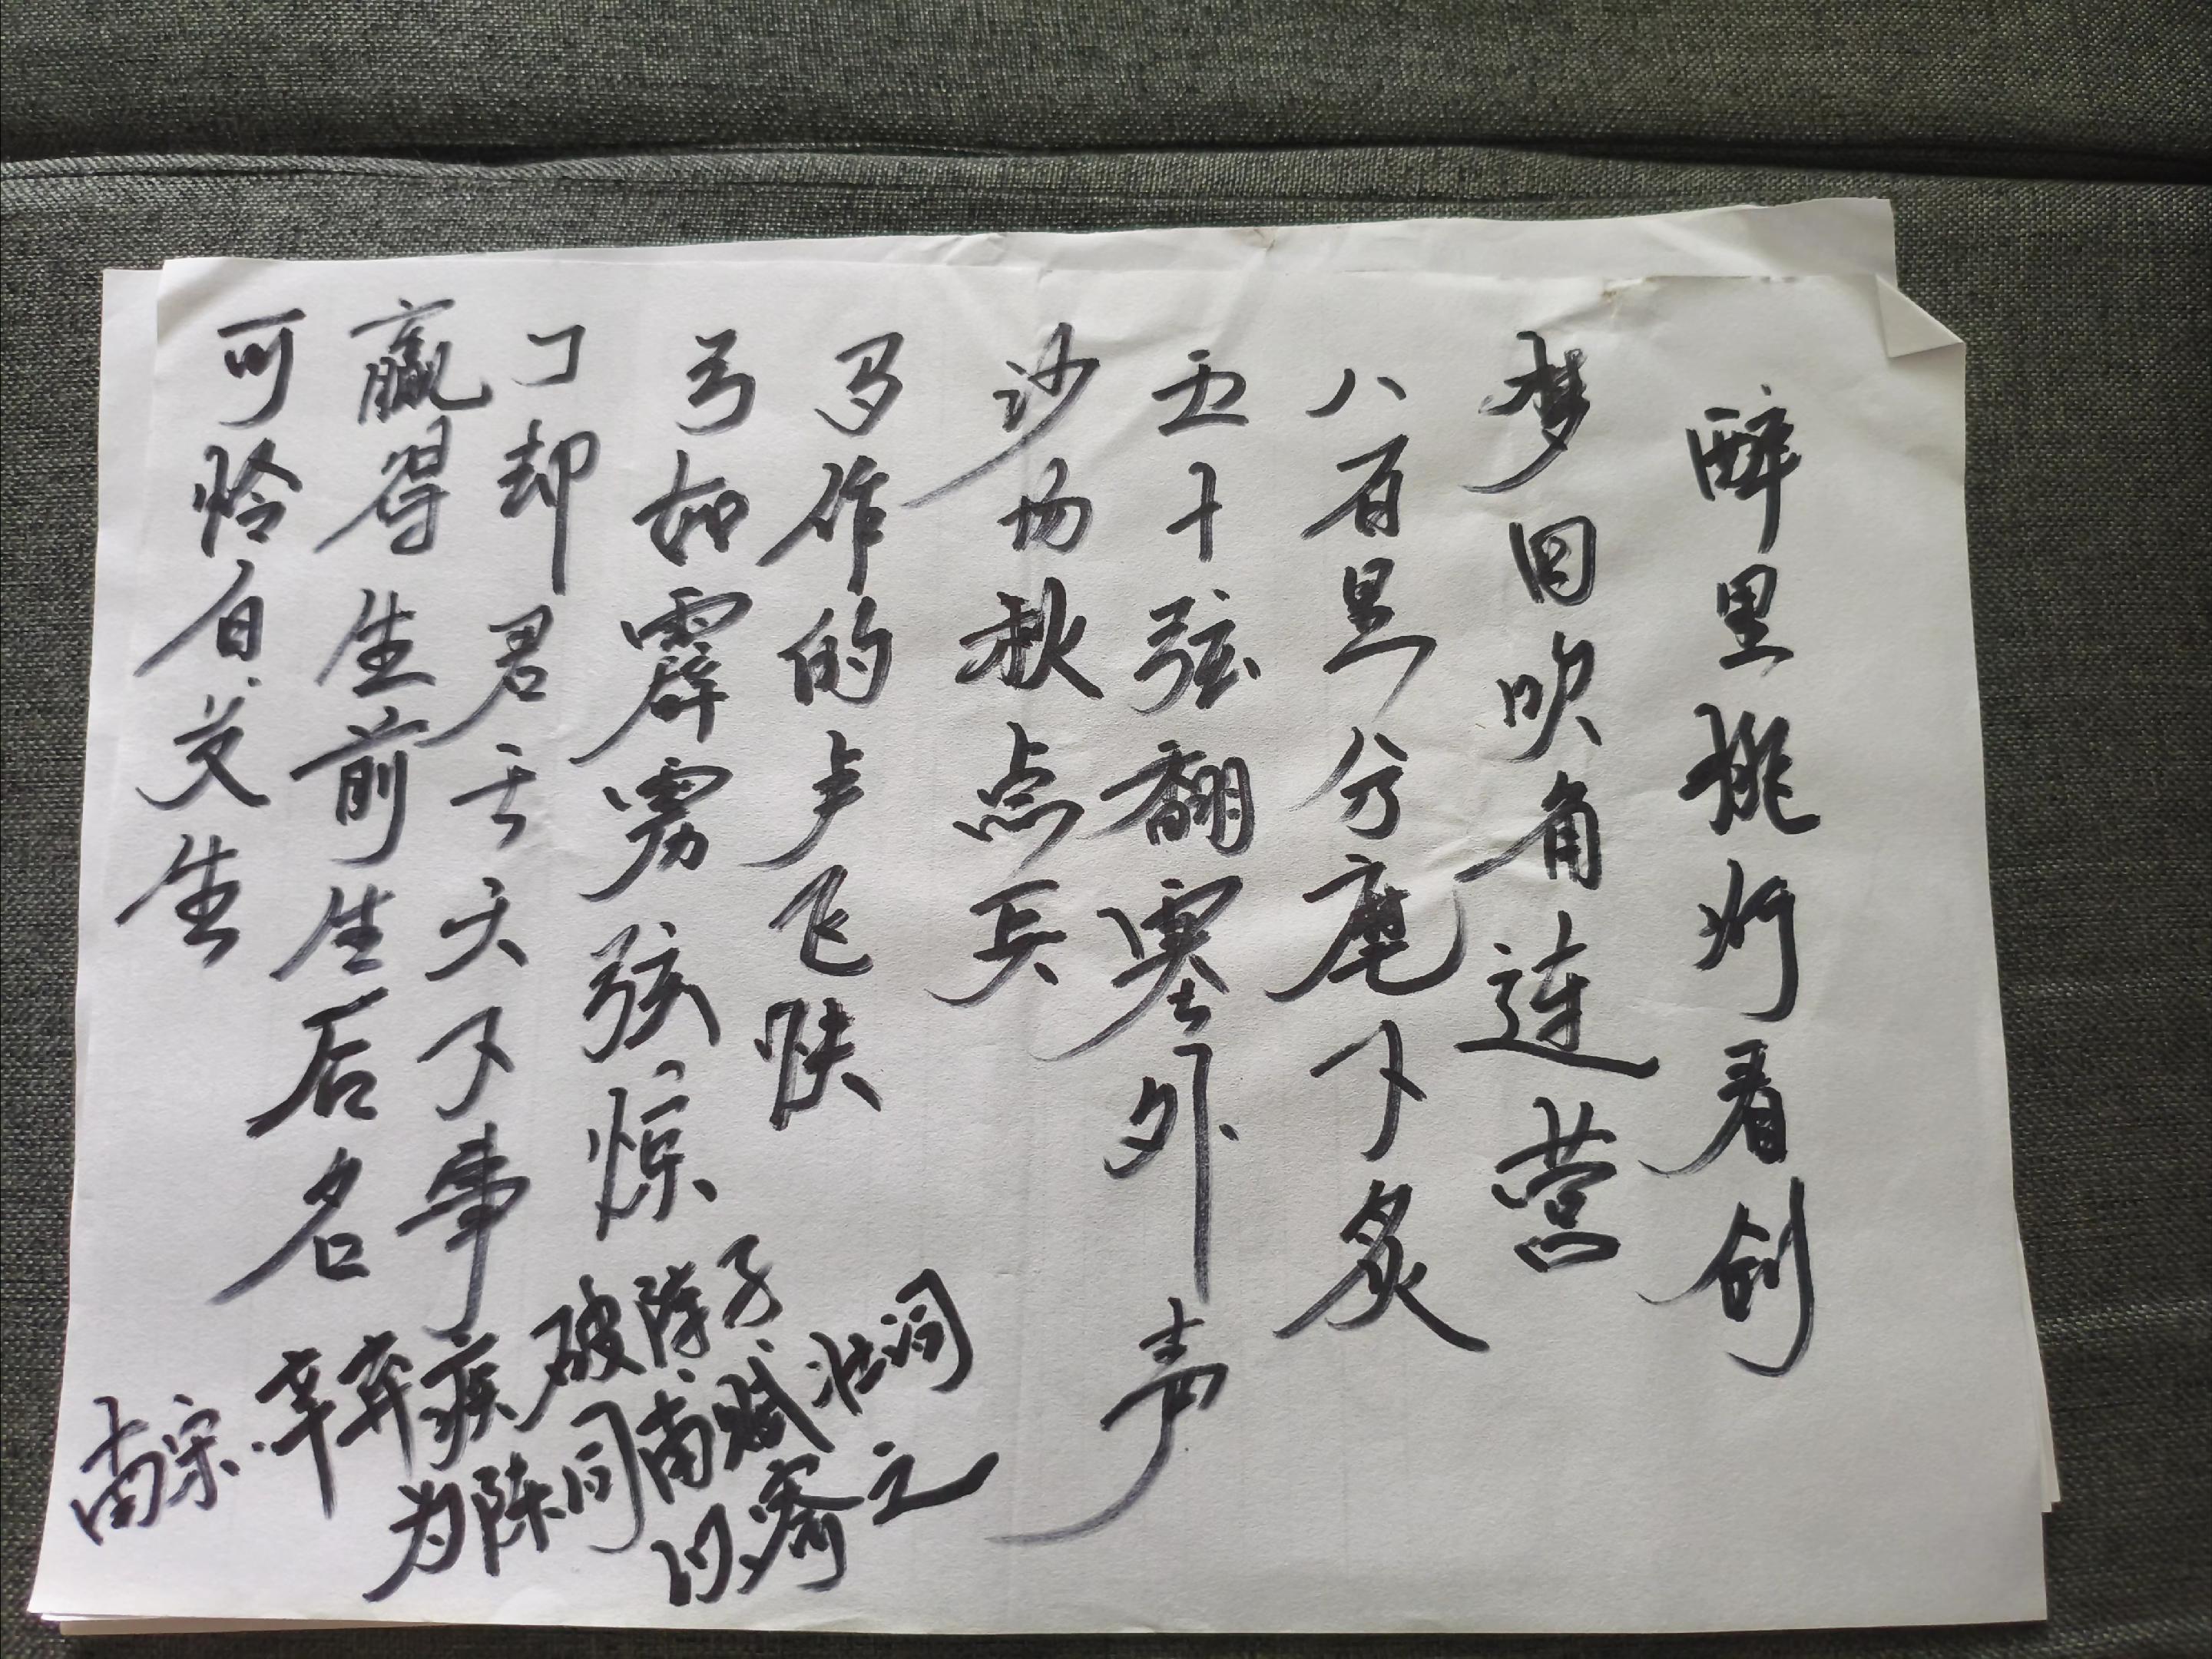 醉里挑灯看剑
梦回吹角连营
八百里分麾下炙
五十弦翻塞外声
沙场秋点兵
马作的卢飞快
弓如霹雳弦惊
了却君王天下事
赢得生前生后名
可怜白发生
南宋.辛弃疾破阵子
为陈同甫赋壮词
以寄之